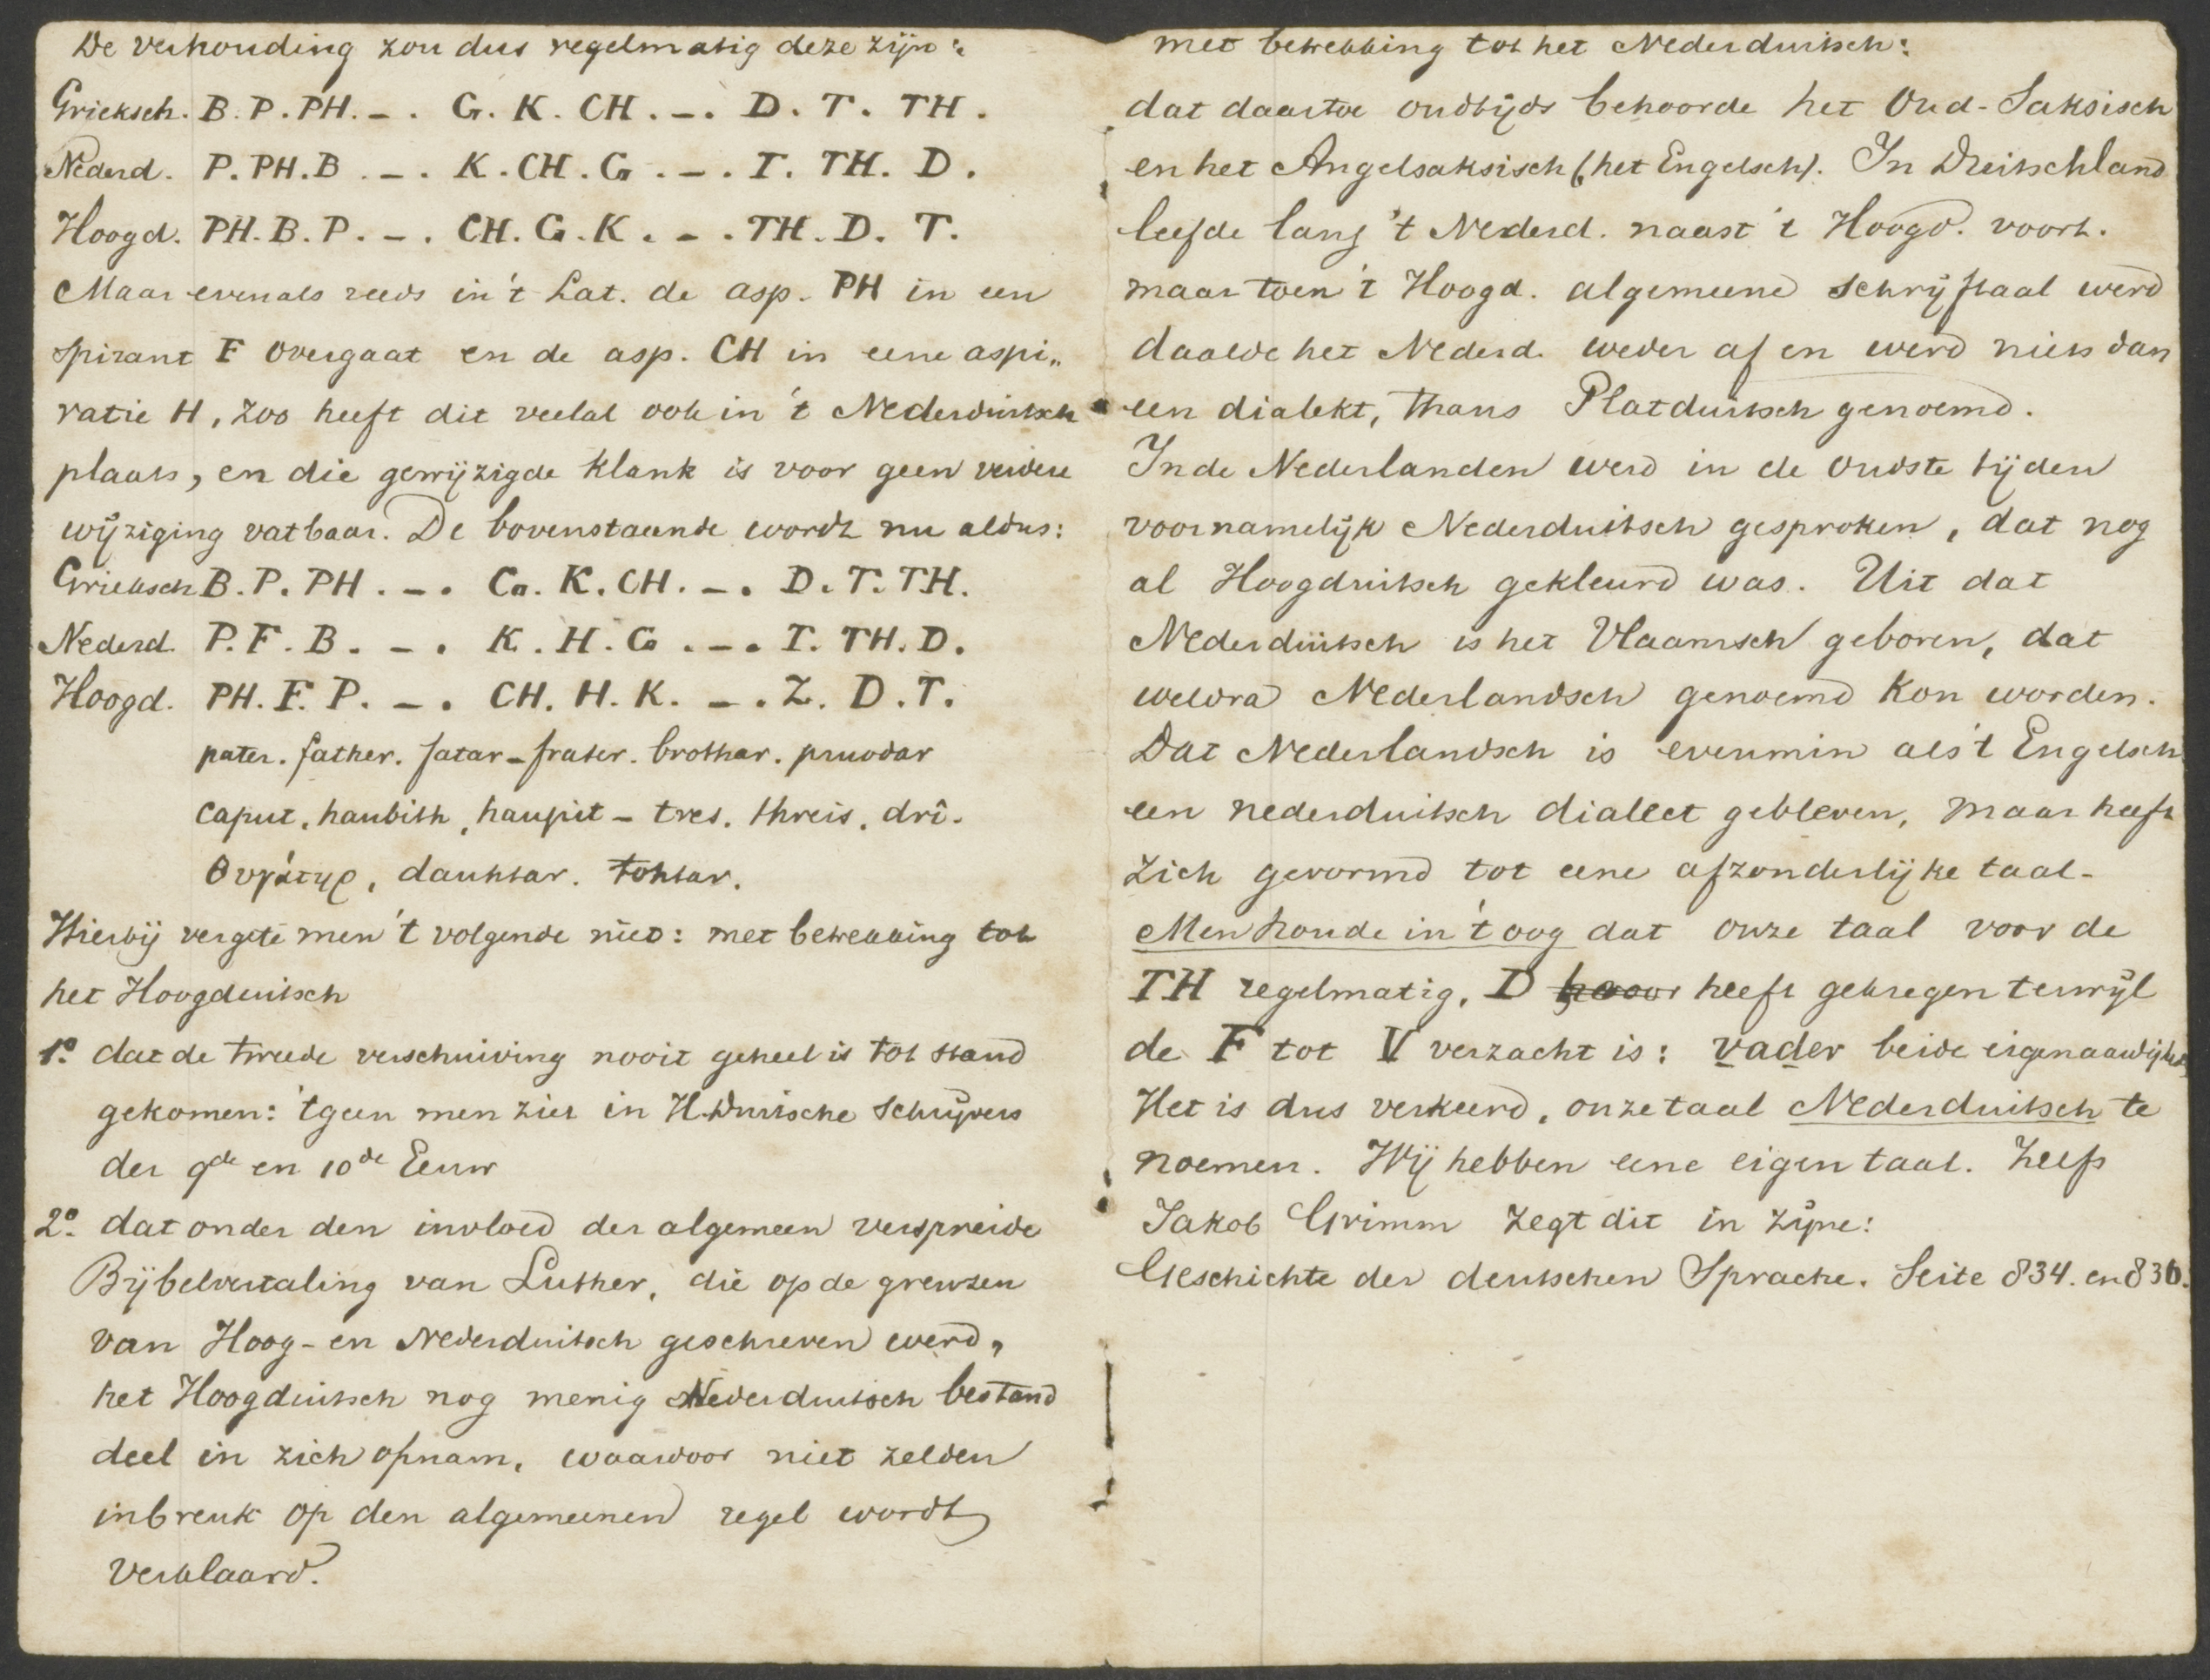 De verhouding zou dus regelmatig deze zijn:
Grieksch. B. P. PH. –. G. K. CH. –. D. T. TH.
Nederd. P. PH. B. –. K. CH. G. –. T. TH. D.
Hoogd. PH. B. P. –. CH. G. K. –. TH. D. T.
Maar evenals reeds in 't Lat. de asp. PH in een
spirant F overgaat en de asp. CH in eene aspi„
ratie H, zoo heeft dit veelal ook in 't Nederduitsch
plaats, en die gewijzigde klank is voor geen verdere
wijziging vatbaar. De bovenstaande wordt nu aldus:
Grieksch B. P. PH. –. G. K. CH. –. D. T. TH.
Nederd. P. F. B. –. K. H. G. –. T. TH. D.
Hoogd. PH. F. P. –. CH. H. K. –. Z. D. T.
pater. father. fatar – frater. brothar. pruodar
caput, haubith, haupit – tres. threis. drî.
θυγάτηρ, dauhtar. tohtar.
Hierbij vergete men 't volgende niet: met betrekking tot
het Hoogduitsch
1o. dat de tweede verschuiving nooit geheel is tot stand
gekomen: 'tgeen men ziet in H.Duitsche schrijvers
der 9de en 10de Eeuw
2o. dat onder den invloed der algemeen verspreide
Bijbelvertaling van Luther, die op de grenzen
van Hoog- en Nederduitsch geschreven werd,
het Hoogduitsch nog menig Nederduitsch bestand
deel in zich opnam, waardoor niet zelden
inbreuk op den algemeenen regel wordt
verklaard.
met betrekking tot het Nederduitsch:
dat daartoe oudtijds behoorde het Oud-Saksisch
en het Angelsaksisch (het Engelsch). In Duitschland
leefde lang 't Nederd. naast 't Hoogd. voort.
maar toen 't Hoogd. algemeene schrijftaal werd
daalde het Nederd. weder af en werd niets dan
een dialekt, thans Platduitsch genoemd.
In de Nederlanden werd in de oudste tijden
voornamelijk Nederduitsch gesproken, dat nog
al Hoogduitsch gekleurd was. Uit dat
Nederduitsch is het Vlaamsch geboren, dat
weldra Nederlandsch genoemd kon worden.
Dat Nederlandsch is evenmin als 't Engelsch
een nederduitsch dialect gebleven, maar heeft
zich gevormd tot eene afzonderlijke taal.
Men houde in 't oog dat onze taal voor de
TH regelmatig, D heeft gekregen terwijl
de F tot V verzacht is: vader beide eigenaardigh
Het is dus verkeerd, onze taal Nederduitsch te
noemen. Wij hebben eene eigen taal. Zelfs
Jakob Grimm zegt dit in zijne:
Geschichte der deutschen Sprache. Seite 834. en 836.